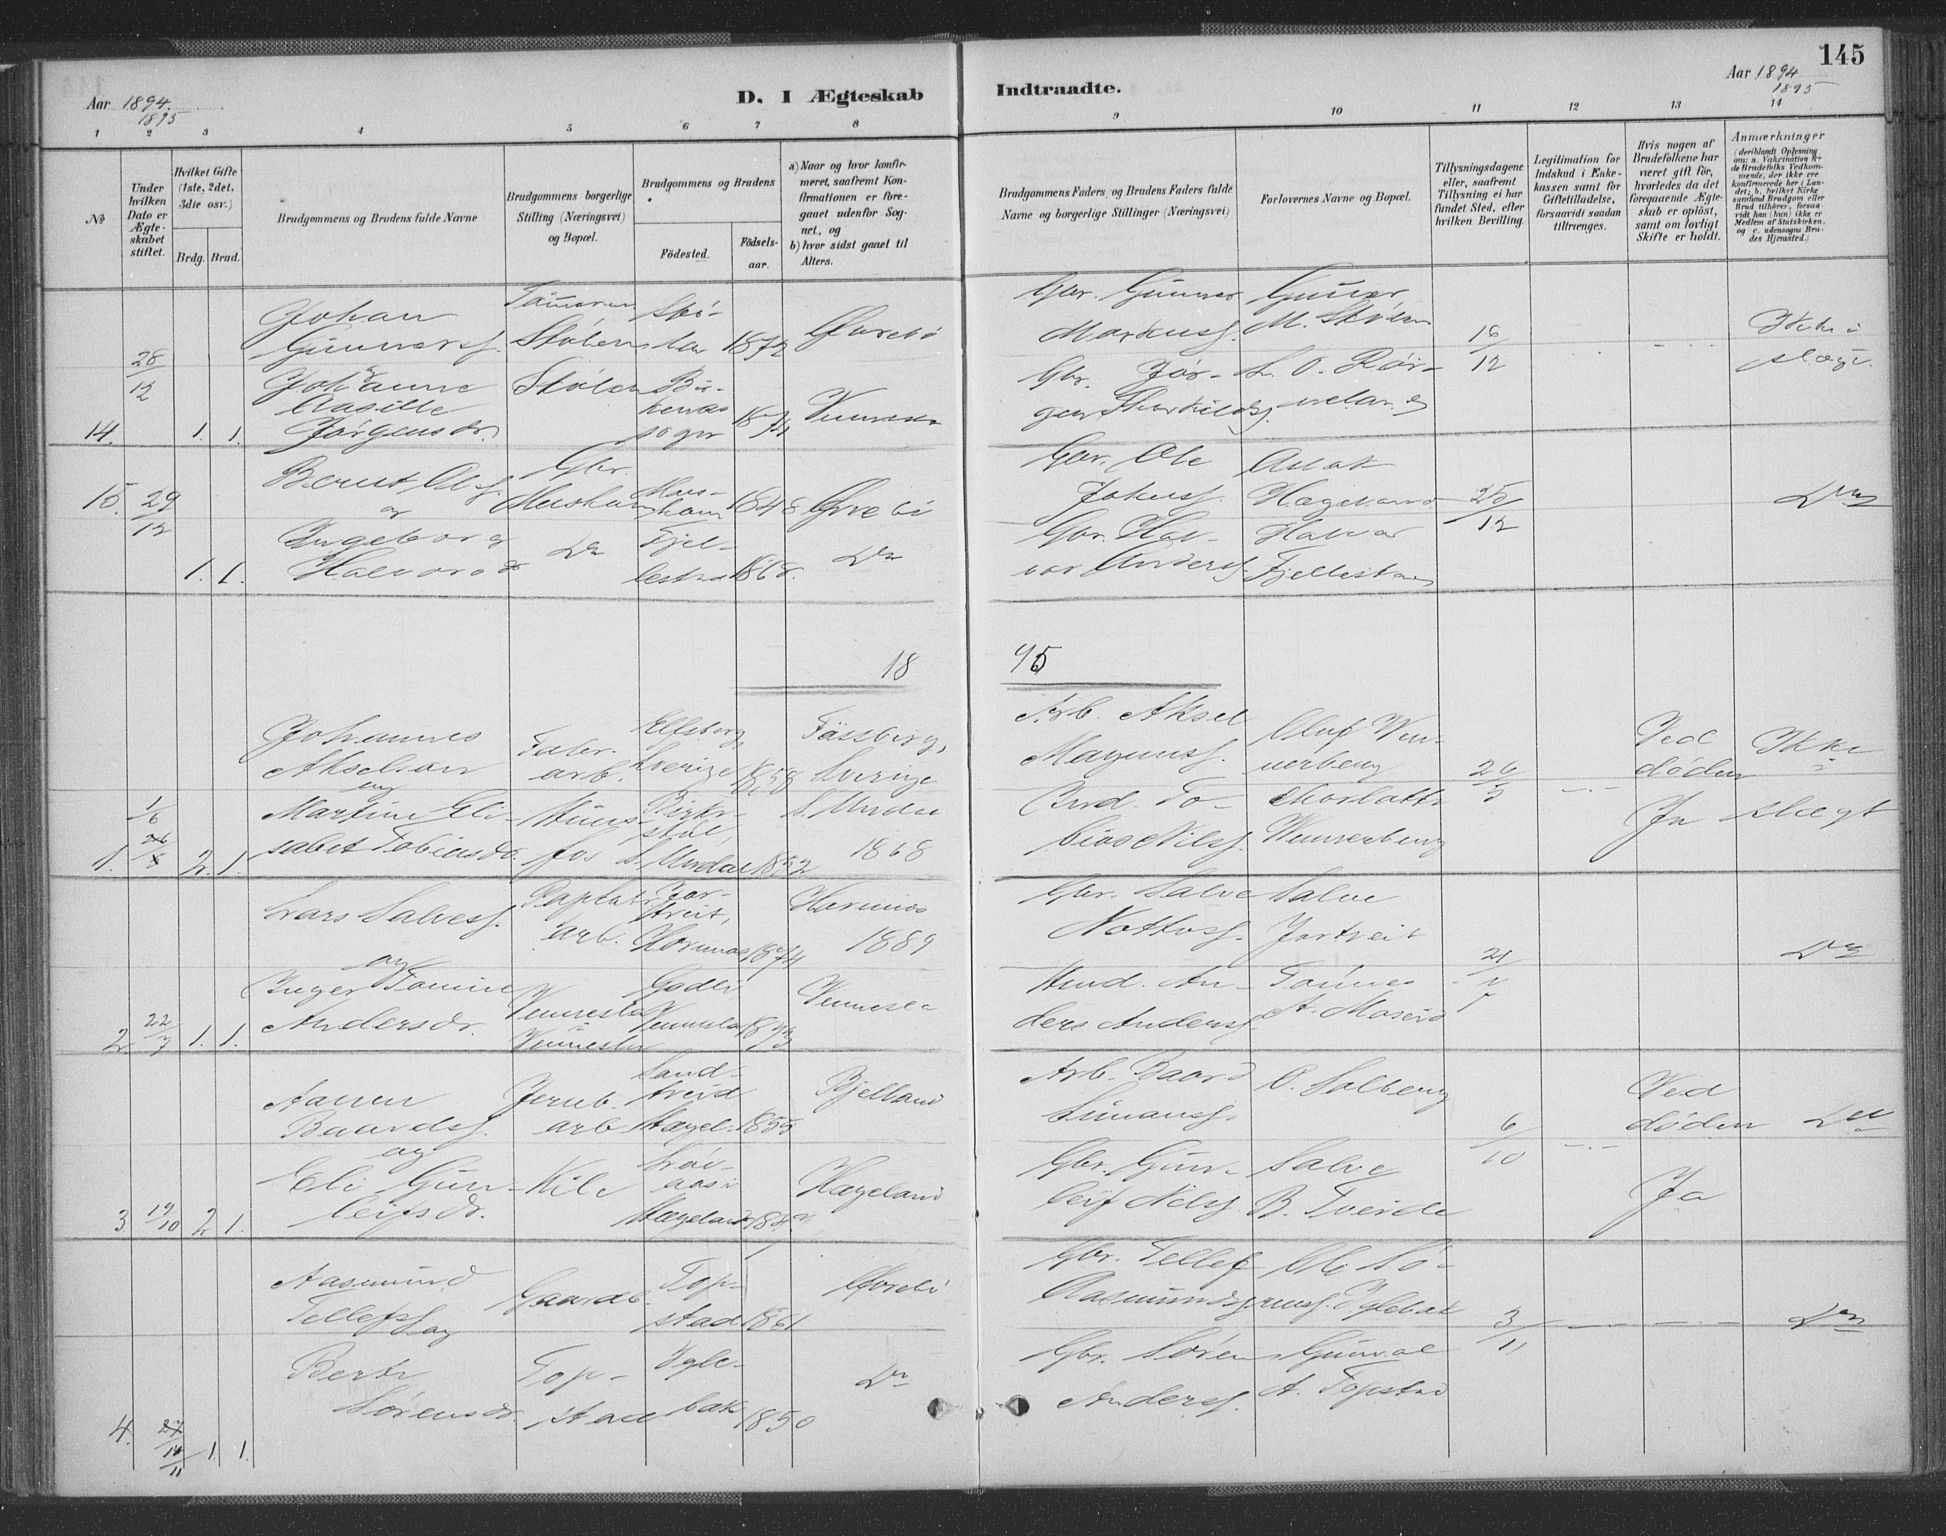 145
Aar 1894.
1895
D. I Ægteskab
Indtraadte.
Aar 1894
1895
1 2 3 4 5 6 7 8
9 10 11 12 13 14
No
Under hvilken Dato er Ægteskabet stiftet.
Hvilket Gifte (1ste, 2det, 3die osv.)
Brdg. Brud.
Brudgommens og Brudens fulde Navne
Brudgommens borgerlige Stilling (Næringsvei) og Bopæl.
Brudgommens og Brudens
Födested.
Födselsaar.
a) Naar og hvor konfirmeret, saafremt Konfirmationen er foregaaet udenfor Sognet, og
b) hvor sidst gaaet til Alters.
Brudgommens Faders og Brudens Faders fulde Navne og borgerlige Stillinger (Næringsvei)
Forlovernes Navne og Bopæl.
Tillysningsdagene eller, saafremt Tillysning ei har fundet Sted, efter hvilken Bevilling.
Legitimation for Indskud i Enkekassen samt for Giftetilladelse, forsaavidt saadan tiltrænges.
Hvis nogen af Brudefolkene har været gift för, hvorledes da det foregaaende Ægteskab er oplöst, samt om lovligt Skifte er holdt.
Anmærkninger
(deriblandt Oplysning om: a. Vakcination for de Brudefolks Vedkommende, der ikke ere konfirmerede her i Landet; b. hvilket Kirkesamfund Brudgom eller Brud tilhörer, forsaavidt han (hun) ikke er Medlem af Statskirken, og c. udensogns Brudes Hjemsted.)
14. 28/12 1. 1.
Johan Gunnarss.
Stölen
1872
Øvrebö
Johanne
Jörgensdr.
Stölen
1874
Vennesla
Gbr. Gunnar
Markuss.
Gbr. Jör-
gen
Gunnar
M. Stölen
16/12
Ikke i
slægt.
15. 29/12 1. 1.
Bernt Ols.
og
Ingeborg
Halvorsd
Gbr.
1848
Øvrebö
Do
Fjel-
lestad
1868.
Do
Gbr. Ole
Jokuss.
Gbr. Hal-
vor Anders.
Aslak
Hægeland
Halvor
Fjellestad
25/12
Do
18 95
1. 1/6 2. 1.
Johannes
Akselsen
og
Martine Eli-
sabet Tobiasdr.
Fabr.
arb.
Huns-
fos
Elfsborg,
Sverige
1858
S. Undal
1852
Fässberg,
Sverige
S. Undal
1868
Arb. Aksel
Magnuss.
To-
bias Nilss.
Oluf Wen-
nerberg
Charlotte
Wennerberg
26/5
Ved
döden
Ja
Ikke
i
slægt
2. 22/7 1. 1.
Lars Salvess.
og
Inger Tomine
Andersdr.
arb.
Vennesla
Vennesla
Jor-
tveit,
Hornnes
1874
Vennesla
1873
Hornnes
1889
Vennesla
Gbr. Salve
Nottoss.
An-
ders Anderss.
Salve
Jortveit
Tönnes
A. Moseid
21/7
Do
3. 19/10 2. 1.
Aanen
Baardss.
og
Eli Gun-
leifsdr.
Jernb.
arb
Kile
Sand-
tveid
Hægel.
1855
Hægeland
Bjelland
Hægeland
Arb. Baard
Simonss.
Gbr. Gun-
leif Nilss.
O. Solberg
Salve
B. Tveide
6/10
Ved
döden
Ja
Do
4. 27/11 1. 1.
Aasmund
Tellefss
og
Berte
Sörensdr.
Gaardb.
Top-
stad
Top-
stad
1861
Igle-
bæk
1850
Øvrebö
Do
Gbr. Tellef
Aasmundss.
Gbr. Sören
Anderss.
Ole Sö-
renss. Iglebæk
Gunval
A. Topstad
3/11
Do